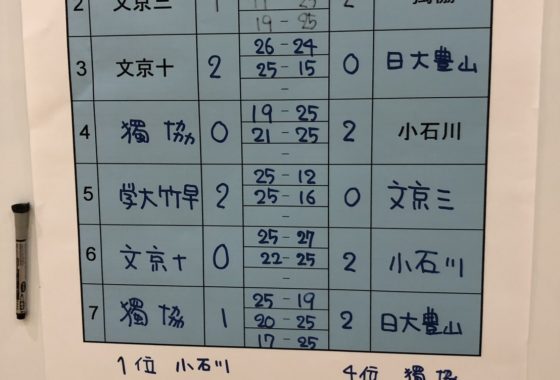 2 文京三 1 2 獨協
19 - 25
3 文京十 2 26 - 24 0 日大豊山
25 - 15
-
4 獨協 0 19 - 25 2 小石川
21 - 25
-
5 学大竹早 2 25 - 12 0 文京三
25 - 16
-
6 文京十 0 25 - 27 2 小石川
22 - 25
-
7 獨協 1 25 - 19 2 日大豊山
20 - 25
17 - 25
1位 小石川 4位 獨協